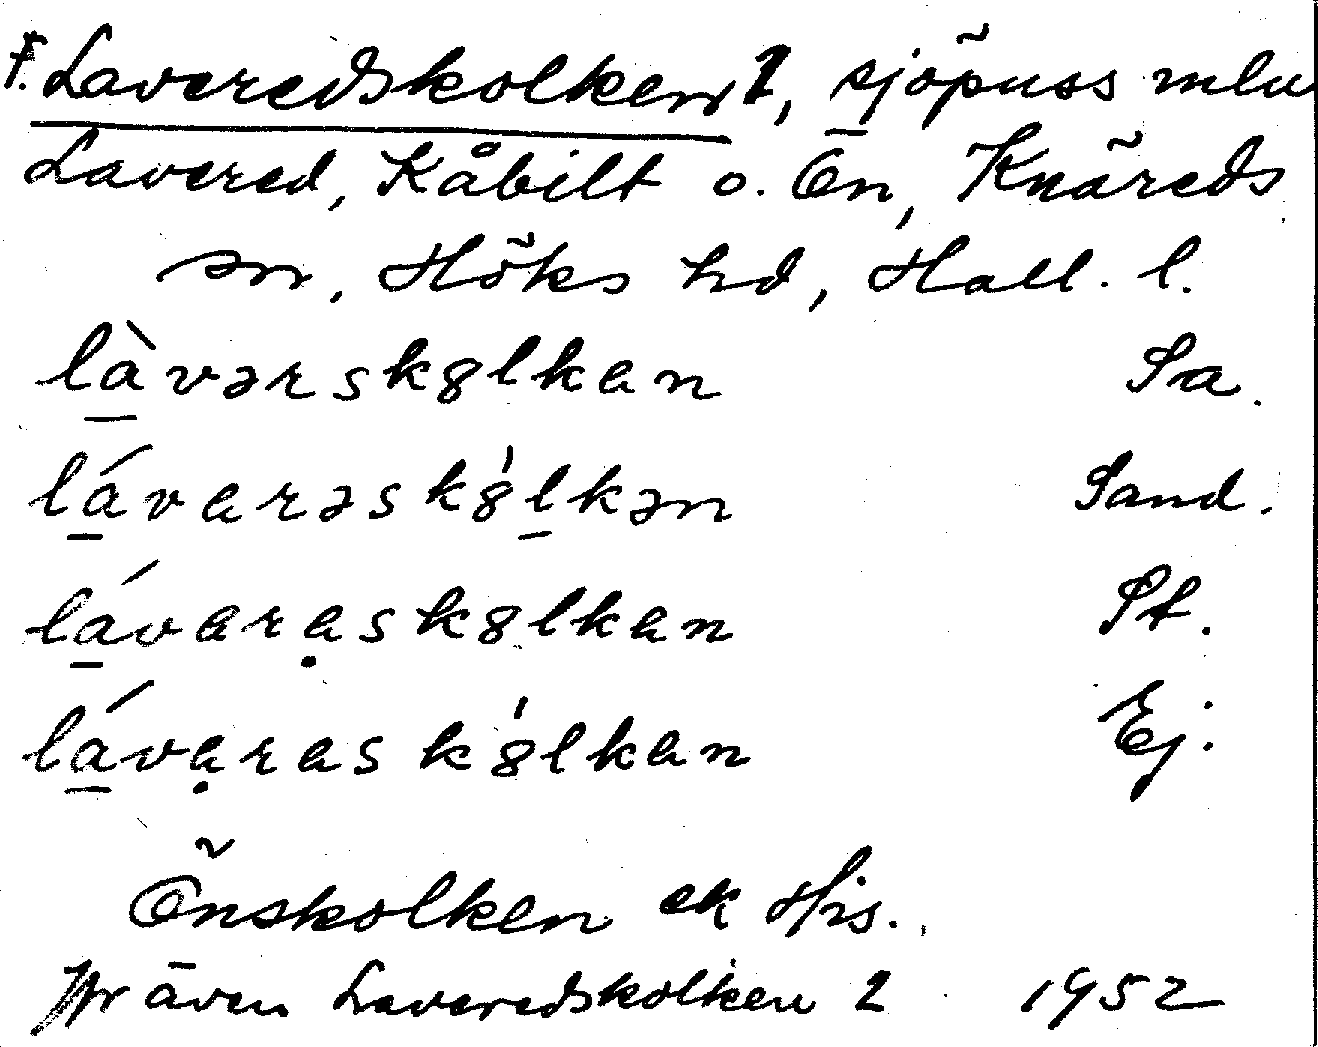 F. Laveredskolken 1, sjöpuss mlu
Lavered, Kåbilt o. Ön, Knäreds
sn, Höks hd, Hall. l.
làvərskɞlkan Sa.
lávarəskɞ́lkən Sand.
lávaraskɞlkan St.
lávaraskɞ́lkan Ej.
Önskolken ek His.
Jfr även Laveredskolken 2 1952